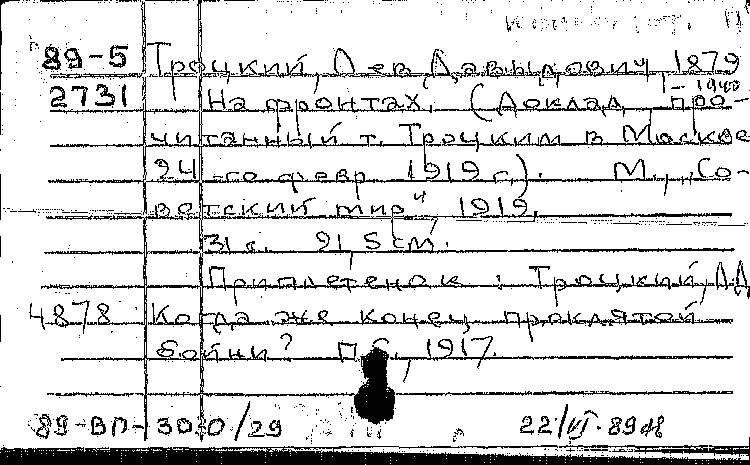 89-5 Троцкий, Лев Давыдович, 1879
2731 На фронтах. (Доклад, про- -1940
читанный т. Троцким в Москве
24-го февр. 1919 г.). М., "Со-
ветский мир", 1919.
31 с. 21,5 см.
Приплетенок: Троцкий, Л.Д.
4878 Когда же конец проклятой
бойни? П., 1917.
89-ВП-3030/29 22/VI-89